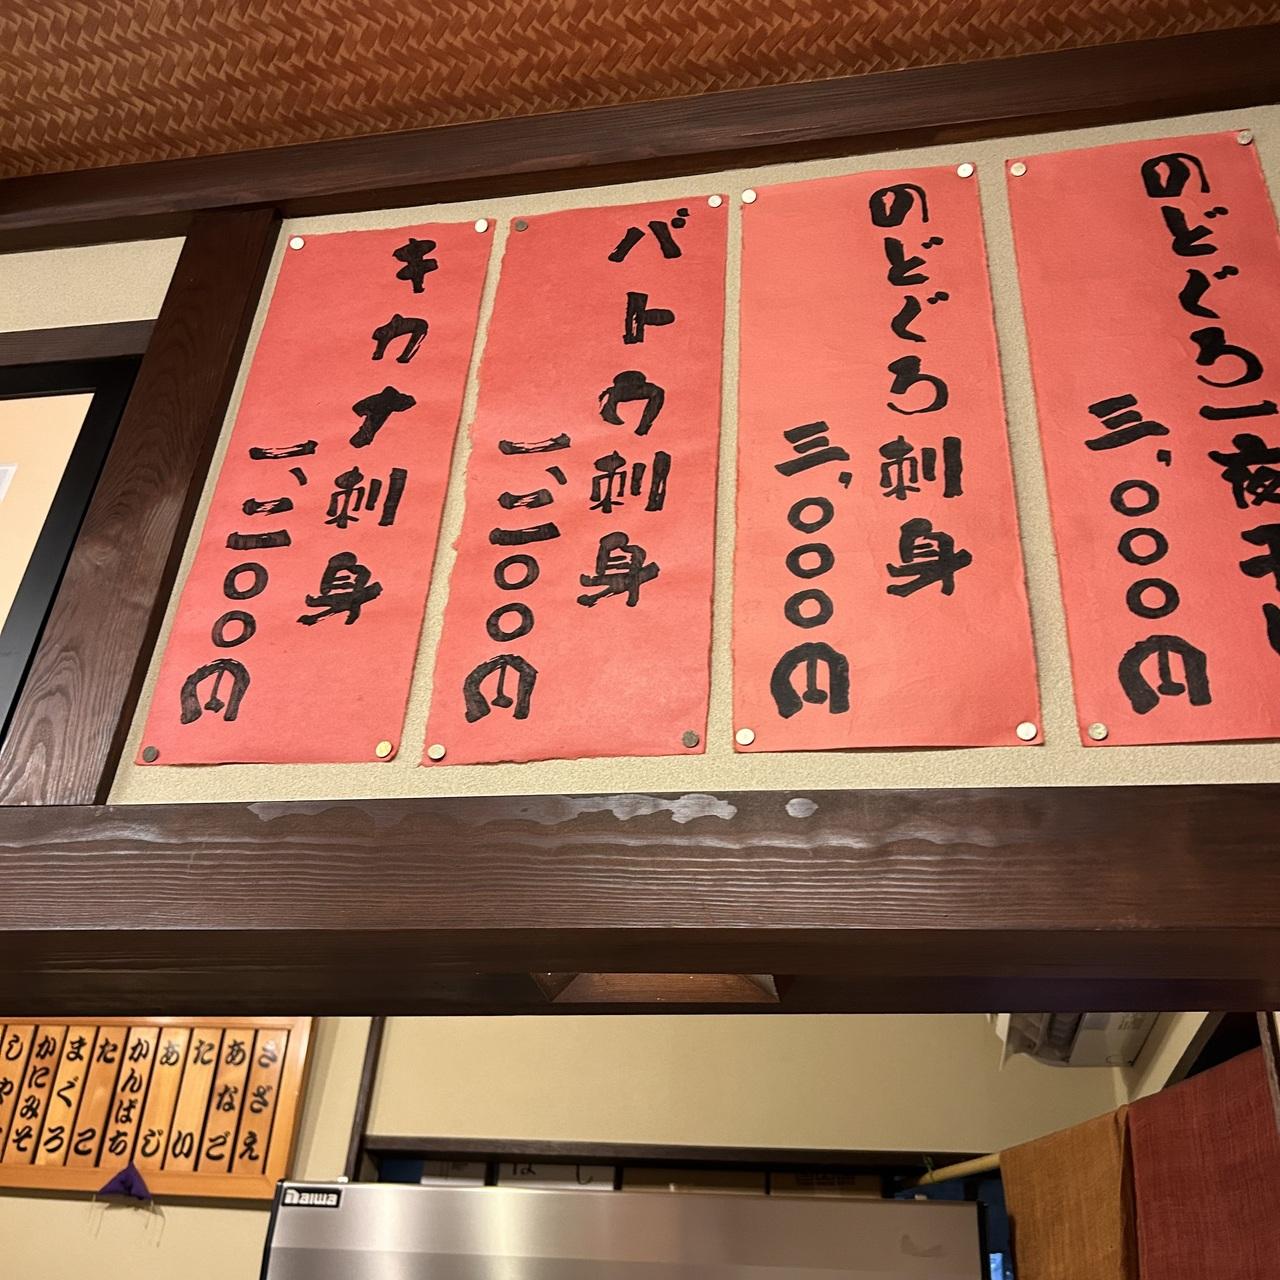 のどぐろ一夜干し
三,〇〇〇円
のどぐろ刺身
三,〇〇〇円
バトウ刺身
一、二〇〇円
キカナ刺身
一、二〇〇円
さざえ
あなご
たい
あじ
かんぱち
たこ
まぐろ
かにみそ
Daiwa